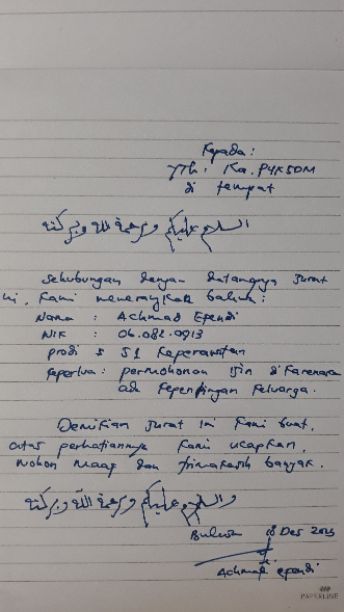 Kepada :
Yth : Ka. P4KSDM
di tempat
السلام عليكم ورحمة الله وبركاته
Sehubungan dengan datangnya surat
ini, kami menerangkan bahwa :
Nama : Achmad Efendi
NIK : 06.082.0913
prodi : S1 Keperawatan
Keperlua : permohonan ijin dikarenakan
ada kepentingan keluarga.
Demikian surat ini kami buat,
atas perhatiannya kami ucapkan,
mohon maaf dan trimakasih banyak.
والسلام عليكم ورحمة الله وبركاته
Des
Achmad Efendi
PAPERLINE